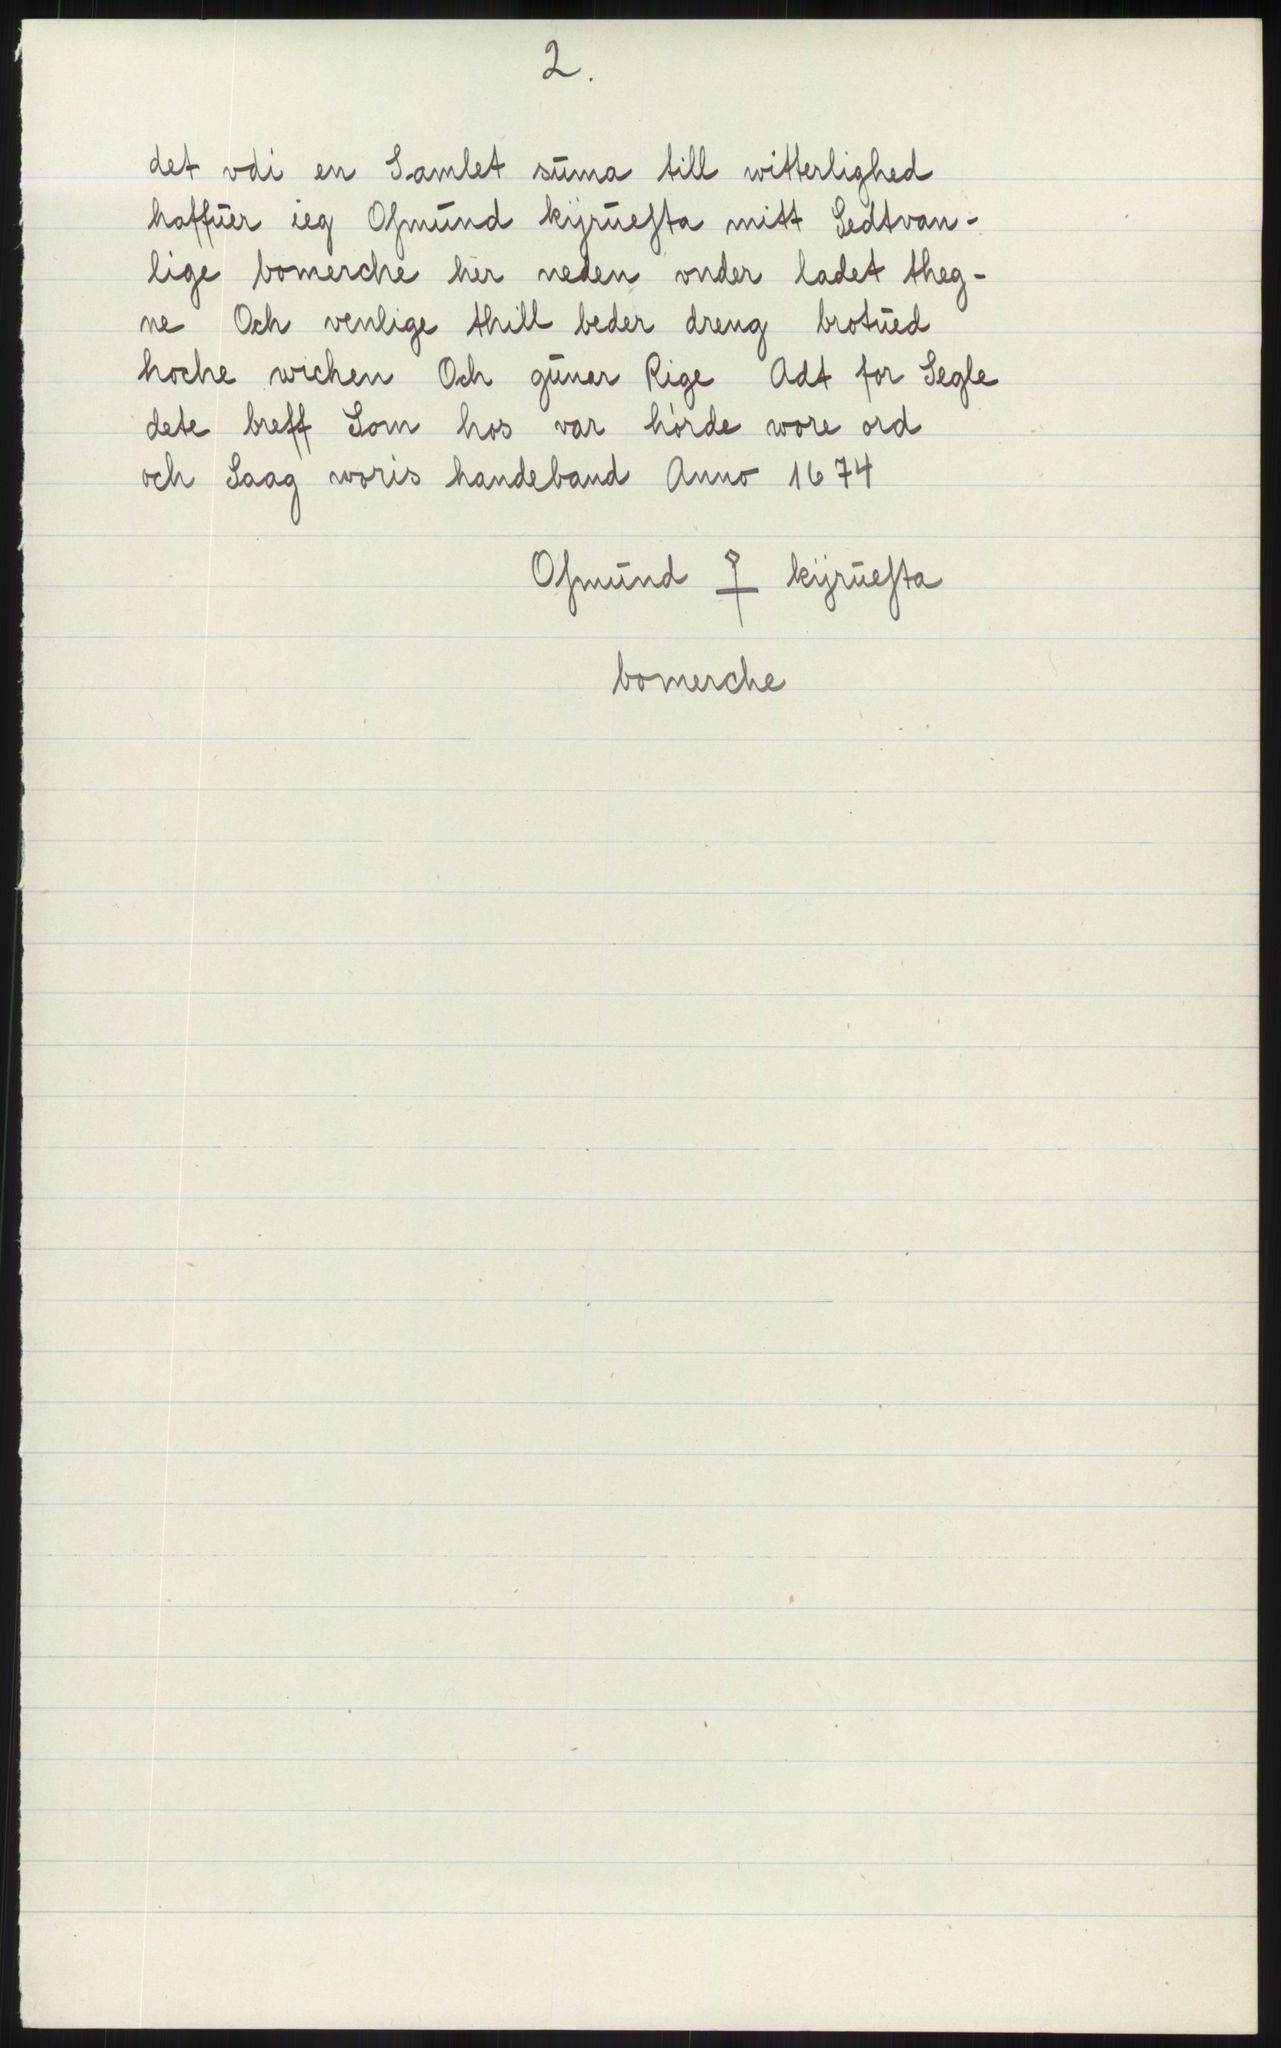 2.
det vdi en Samlet sūma till witterlighed
haffūer ieg Osmūnd kÿrūesta mitt Sedtvan-
lige bomerche her neden vnder ladet theg-
ne Och venlige thill beder dreng brotūed
hoche wichen Och gūnar Rige Adt for Segle
dete breff Som hos var hörde wore ord
och Saag woris handeband Anno 1674
Osmūnd kÿrūesta
bomerche